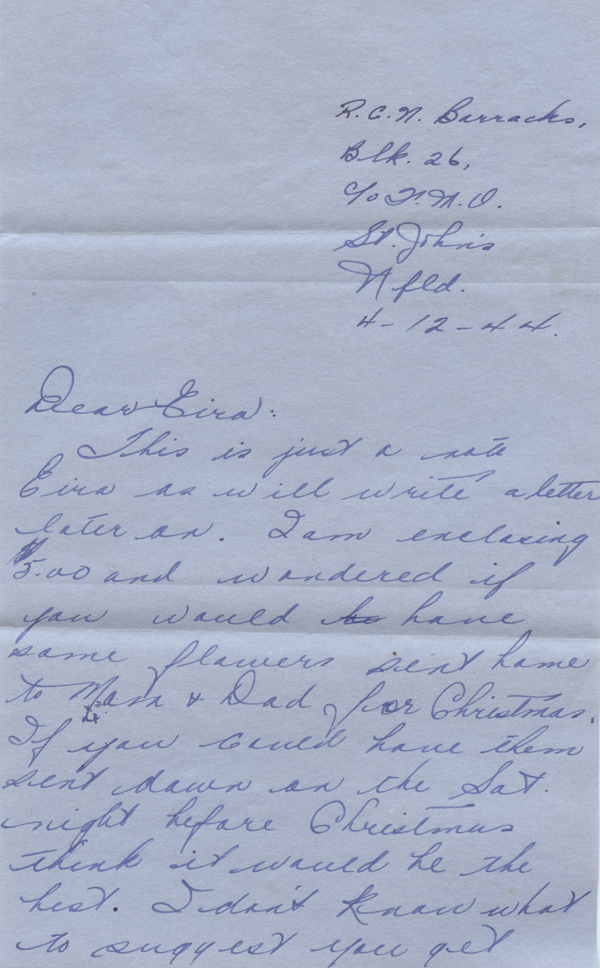 R.C.N. Barracks,
Blk. 26,
c/o F.M.O.
St. John's
Nfld.
4-12-44.
Dear Eira:
This is just a note
Eira as will write a letter
later on. I am enclosing
$5.00 and wondered if
you would be have
some flowers sent home
to Mom & Dad for Christmas.
If you could have them
sent down on the Sat.
night before Christmas
think it would be the
best. I don't know what
to suggest you get